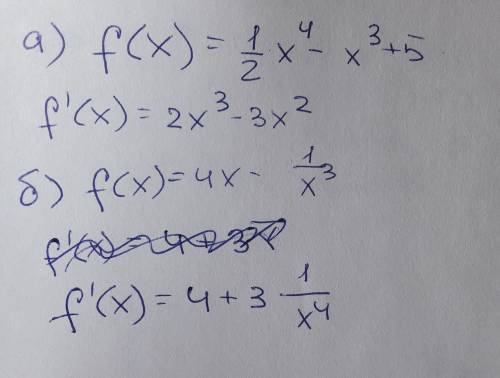 а) f(x) = 1/2 x⁴ - x³ + 5
f'(x) = 2x³ - 3x²
б) f(x) = 4x - 1/x³
f'(x) = 4 + 3 · 1/x⁴